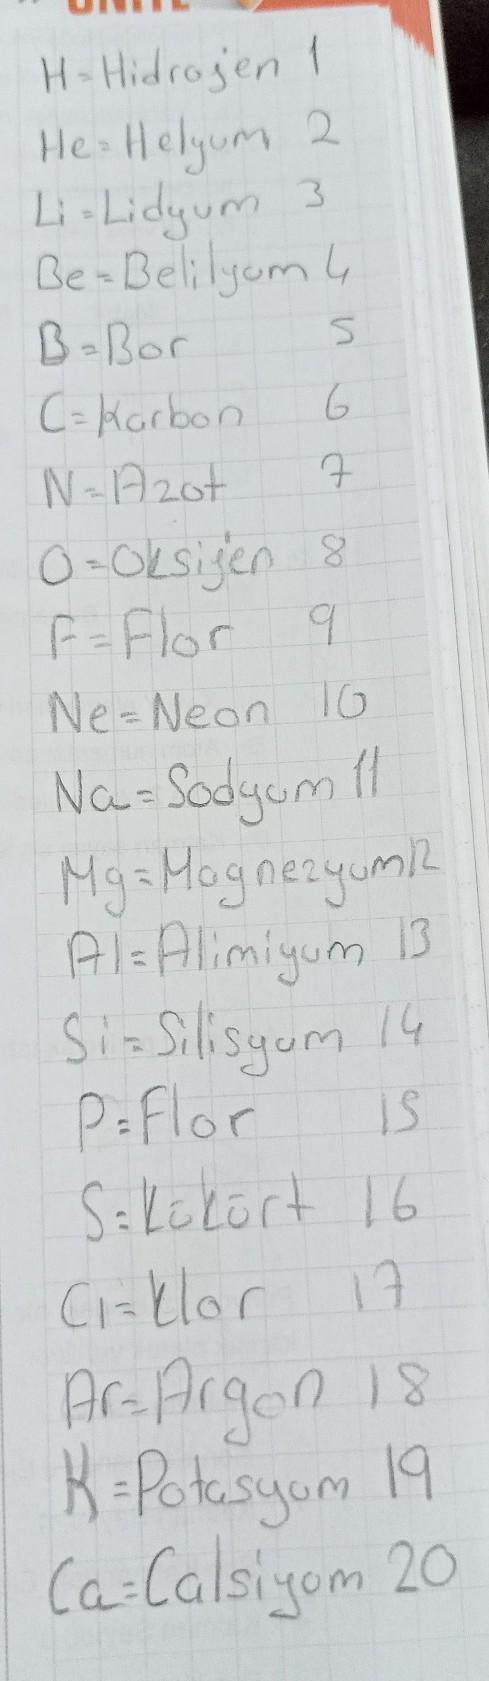 ÜNİTE
H=Hidrojen 1
He=Helyum 2
Li=Lidyum 3
Be=Belilyum 4
B=Bor 5
C=Karbon 6
N=Azot 7
O=Oksijen 8
F=Flor 9
Ne=Neon 10
Na=Sodyum 11
Mg=Magnezyum 12
Al=Alimiyum 13
Si=Silisyum 14
P=Flor 15
S=Kükürt 16
Cl=Klor 17
Ar=Argon 18
K=Potasyum 19
Ca=Calsiyom 20